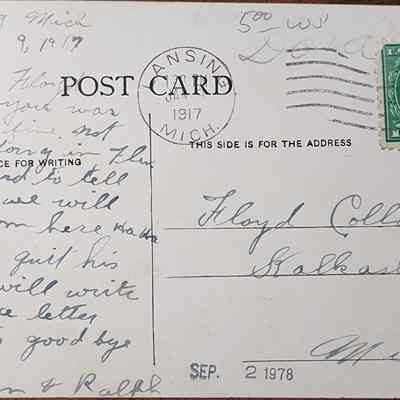 Mich
9, 1917
Floy
you was
line not
doing in Flin
rd to tell
we will
m here
quit his
will write
letter
good bye
n & Ralph
POST CARD
CE FOR WRITING
ANSIN
JAN
1917
MICH.
5.00 WS
THIS SIDE IS FOR THE ADDRESS
Floyd Coll
Kalkas
Mi
SEP. 2 1978